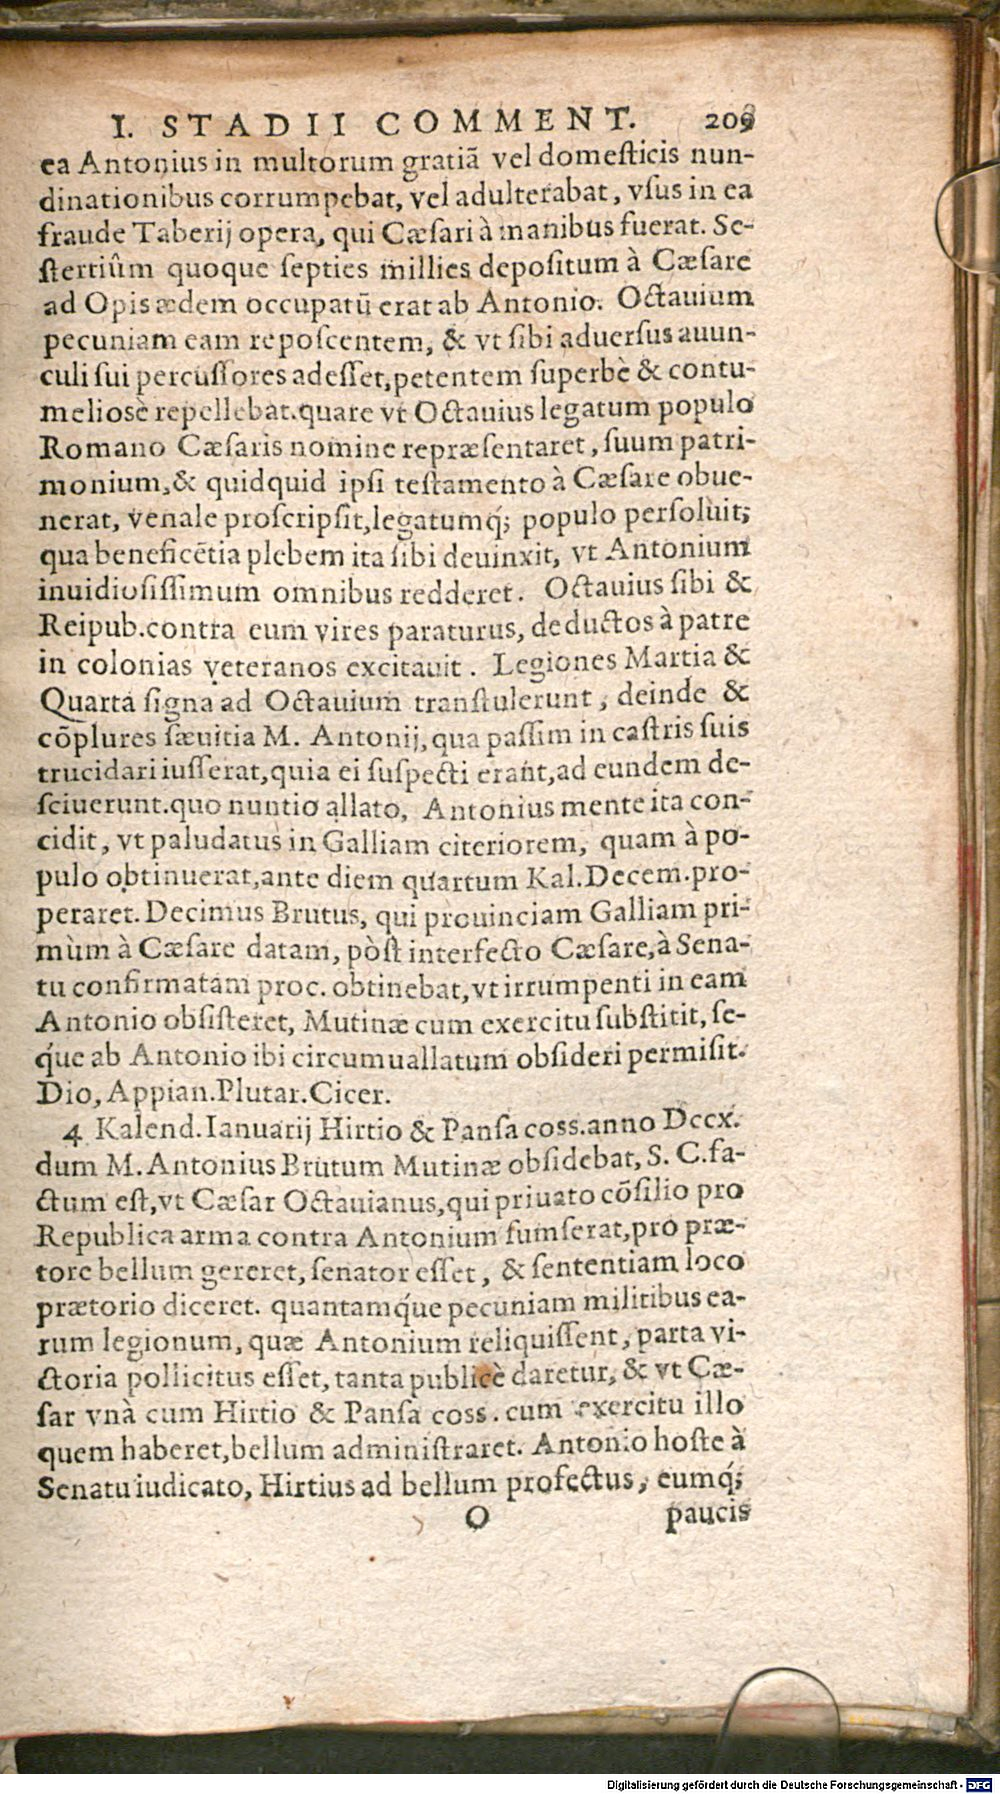 I. STADII COMMENT. 209
ea Antonius in multorum gratiā vel domesticis nun-
dinationibus corrumpebat, vel adulterabat, vſus in ea
fraude Taberij opera, qui Cæſari à manibus fuerat. Se-
ſtertiûm quoque ſepties millies depoſitum à Cæſare
ad Opis ædem occupatū erat ab Antonio. Octauium
pecuniam eam repoſcentem, & vt ſibi aduerſus auun-
culi ſui percuſſores adeſſet, petentem ſuperbè & contu-
melioſè repellebat. quare vt Octauius legatum populo
Romano Cæſaris nomine repræſentaret, ſuum patri-
monium, & quidquid ipſi teſtamento à Cæſare obue-
nerat, venale proſcripſit, legatumq́; populo perſoluit;
qua beneficētia plebem ita ſibi deuinxit, vt Antonium
inuidioſiſſimum omnibus redderet. Octauius ſibi &
Reipub. contra eum vires paraturus, deductos à patre
in colonias veteranos excitauit. Legiones Martia &
Quarta ſigna ad Octauium tranſtulerunt, deinde &
cōplures ſæuitia M. Antonij, qua paſſim in caſtris ſuis
trucidari iuſſerat, quia ei ſuſpecti erant, ad eundem de-
ſciuerunt. quo nuntio allato, Antonius mente ita con-
cidit, vt paludatus in Galliam citeriorem, quam à po-
pulo obtinuerat, ante diem quartum Kal. Decem. pro-
peraret. Decimus Brutus, qui prouinciam Galliam pri-
mùm à Cæſare datam, pòſt interfecto Cæſare, à Sena-
tu confirmatam proc. obtinebat, vt irrumpenti in eam
Antonio obſiſteret, Mutinæ cum exercitu ſubſtitit, ſe-
q́ue ab Antonio ibi circumuallatum obſideri permiſit.
Dio, Appian. Plutar. Cicer.
4 Kalend. Ianuarij Hirtio & Panſa coss. anno Dccx.
dum M. Antonius Brutum Mutinæ obſidebat, S. C. fa-
ctum eſt, vt Cæſar Octauianus, qui priuato cōſilio pro
Republica arma contra Antonium ſumſerat, pro præ-
tore bellum gereret, ſenator eſſet, & ſententiam loco
prætorio diceret. quantamq́ue pecuniam militibus ea-
rum legionum, quæ Antonium reliquiſſent, parta vi-
ctoria pollicitus eſſet, tanta publicè daretur, & vt Cæ-
ſar vnà cum Hirtio & Panſa coss. cum exercitu illo
quem haberet, bellum adminiſtraret. Antonio hoſte à
Senatu iudicato, Hirtius ad bellum profectus, eumq́;
O paucis
Digitalisierung gefördert durch die Deutsche Forschungsgemeinschaft - DFG